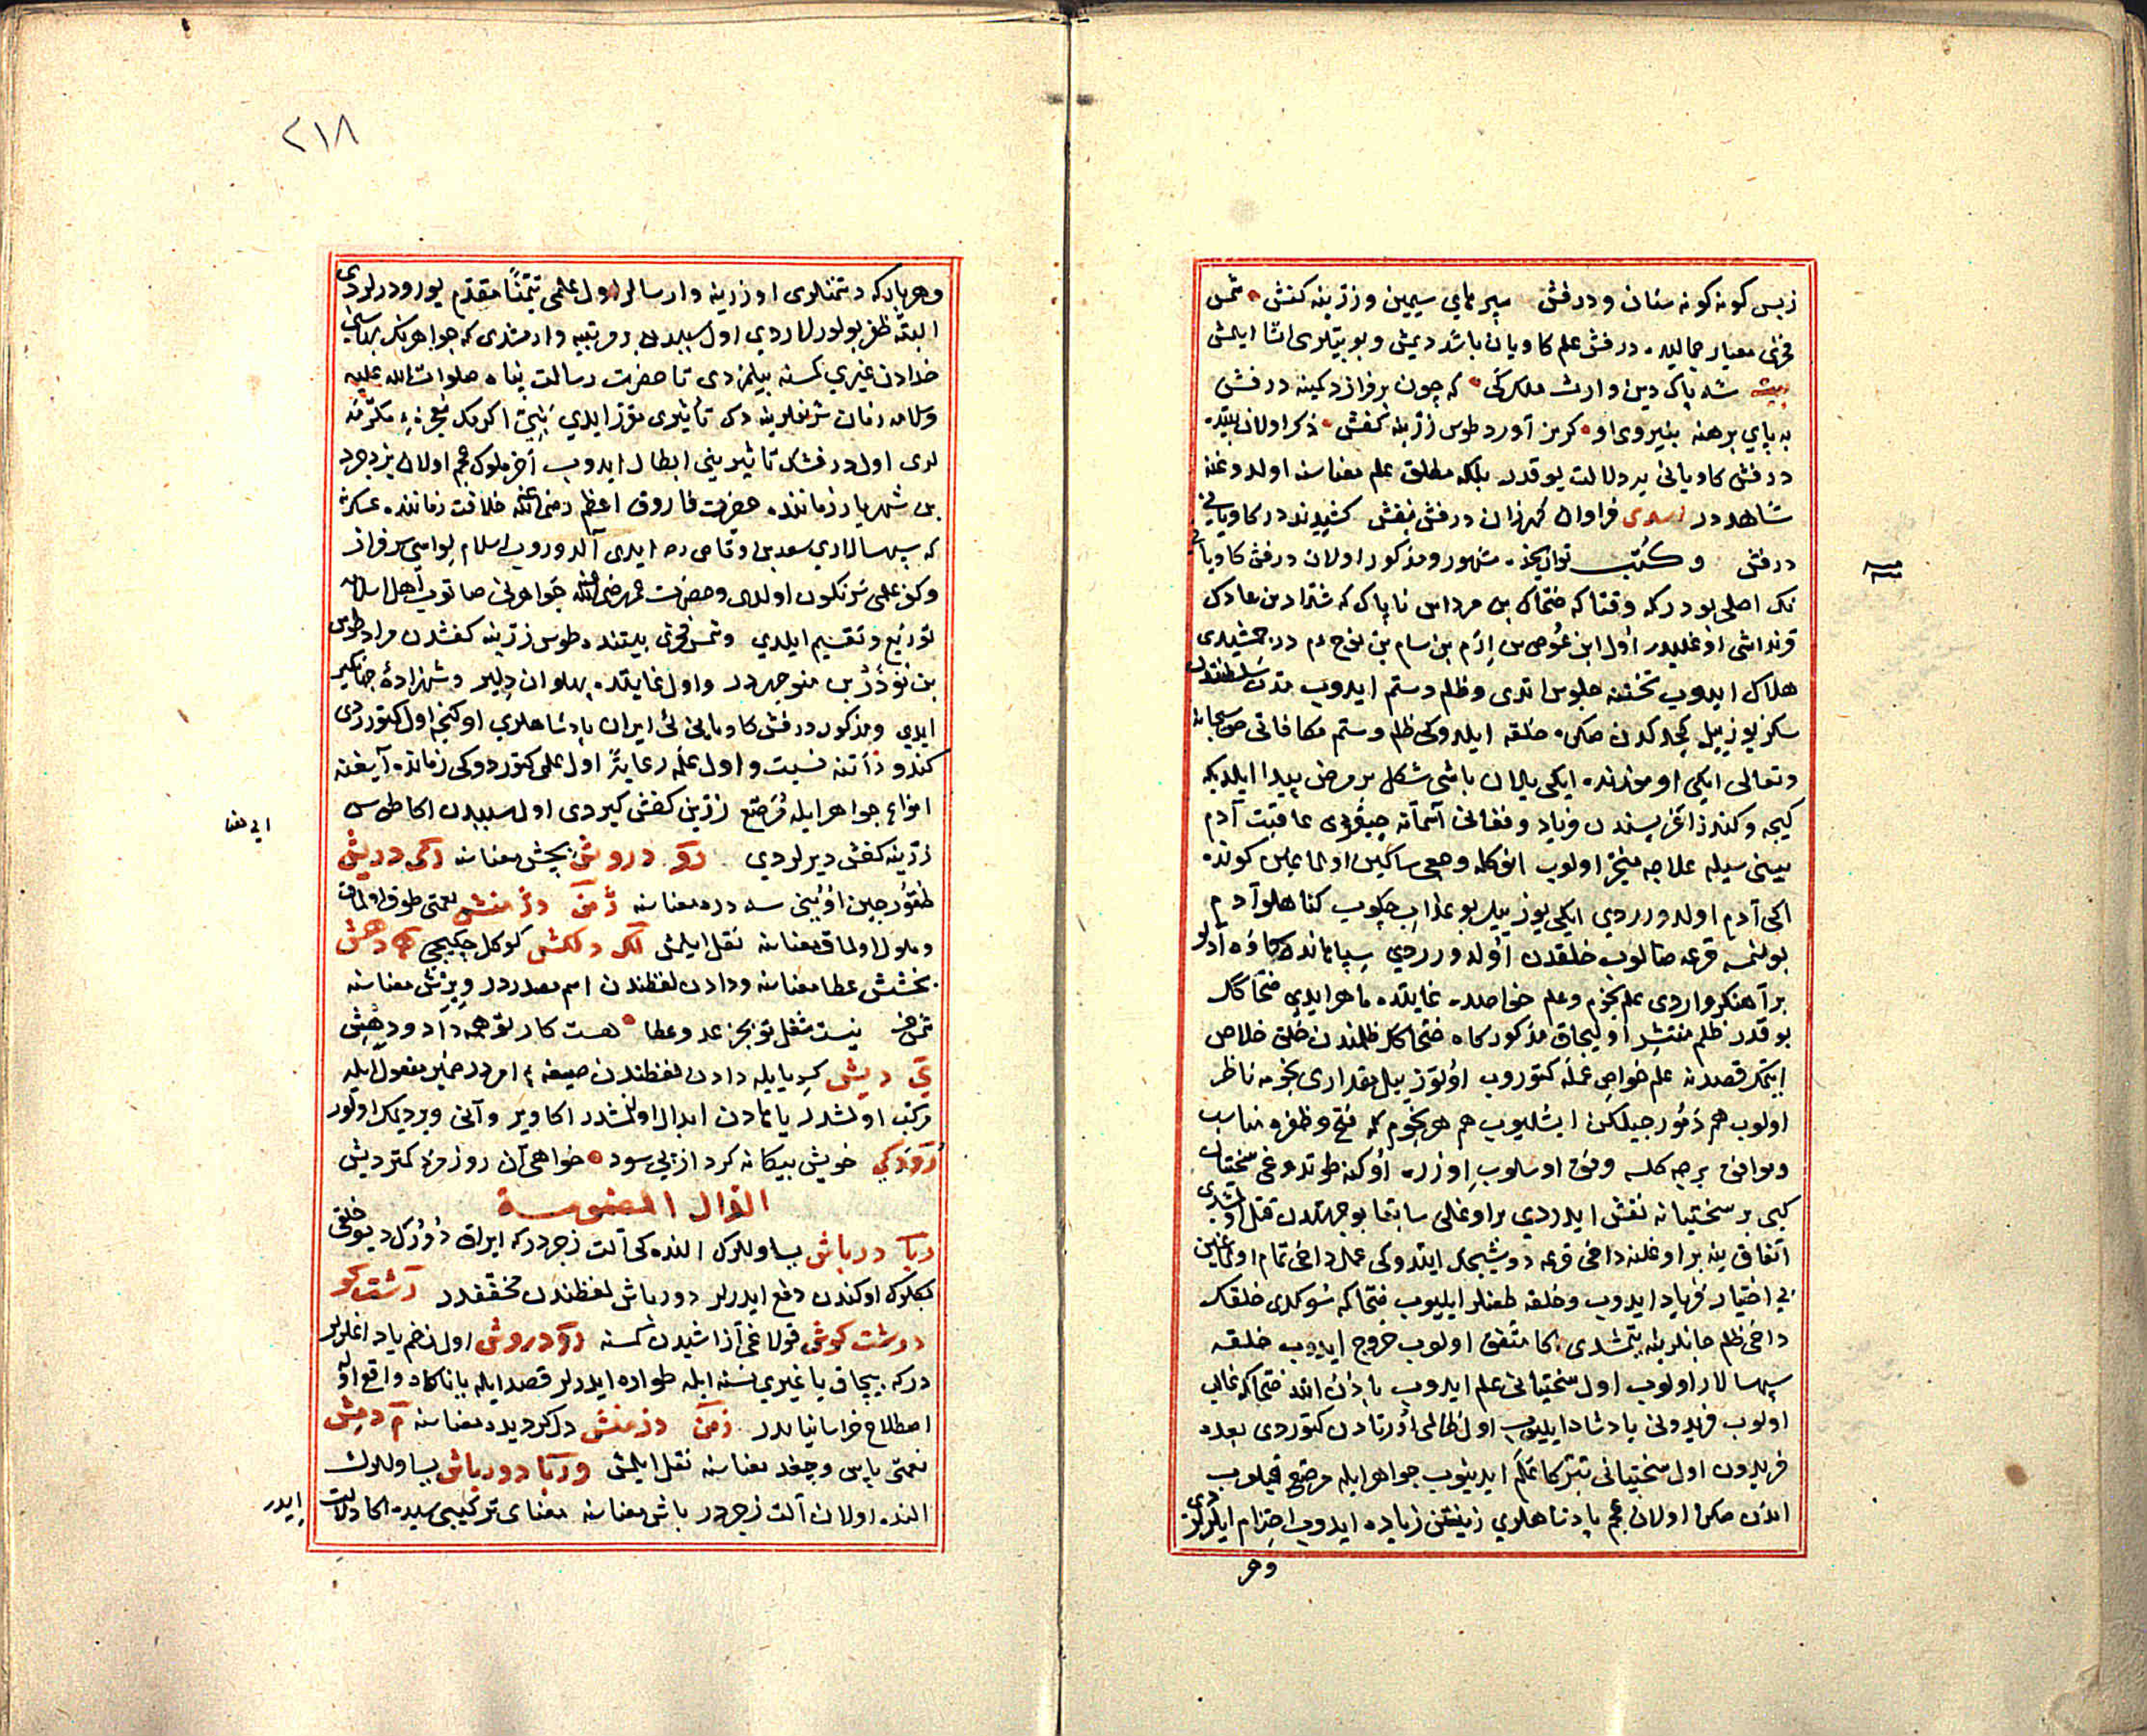 زبس كونه كونه سنان ودرفش سپرهای سیمین وزرینه كفش شمس
فخری معیار جمالیده درفش علم كاویان باشد دیمش وبو بیتلری انشا ایلمش
بیت شه پاك دین وارث ملك كی كه چون برفرازد كینه درفش
به پای برهنه بنیروی او كریز آورد طوس زرینه كفش ذكر اولان بیتده
درفش كاویانی یه دلالت یوقدر بلكه مطلق علم معناسنه اولدوغنه
شاهددر اسدی فراوان كهرزان درفش بنفش كشیدند در كاویانی
درفش وكتب تواریخده مشهور ومذكور اولان درفش كاویانی
نك اصلی بودركه وقتاكه ضحاك بن مرداس ناپاك كه شداد بن عادك
قرنداشی اوغلیدر اول ابن عوص بن ارم بن سام بن نوح در جمشیدی
هلاك ایدوب تختنه جلوس اتدی وظلم وستم ایدوب مدت سلطنتدن
سكز یوز ییل كچدكدن صكره خلقه ایلدوكی ظلم وستم مكافاتی حق سبحانه
وتعالی ایكی اوموزنده ایكی ییلان باشی شكل بر مرض پیدا ایلدیكه
كیجه وكندز اغریسندن فریاد وفغانی آسمانه چیقردی عاقبت آدم
بیینی سیله علاجه منجر اولوب انوكله وجعی ساكین اولماغین كونده
اكی آدم اولدررردی ایكی یوز ییل بو عذاب چكوب كناهلو آدم
بولنمسه قرعه صالوب خلقدن اولدررردی سپاهانده كاوه آدلو
بر آهنكر واردی علم نجوم وعلم خواصده غایتده ماهر ایدی ضحاكك
بو قدر ظلم منتشر اولیجاق مذكور كاوه ضحاكك ظلمندن خلق خلاص
ایتمك قصدنه علم خواص عمله كتوروب اوتوز ییل مقداری نجومه ناظر
اولوب هم دمورجیلكن ایشلیوب هم هر نجوم كه فتح وظفره مناسب
وموافق برجه كلسه وفق اوسلوب اوزره اوكنه طوتدوغی سختیان
كبی بر سختیانه نقش ایدردی بر اوغلی سابقا بو جهتدن قتل اولمشدی
اتفاق ینه بر اوغلنه داخی قرعه دوشیجك ایتدوكی عمل داخی تمام اولماغین
بی اختیار فریاد ایدوب وخلقه طعنلر ایلیوب ضحاكه شوكلدی خلقك
داخی ظلم جانلرینه یتمشدی اكا متفق اولوب خروج ایدوب خلقه
سپهسالار اولوب اول سختیانی علم ایدوب باذن الله ضحاكه غالب
اولوب فریدونی پادشاه ایلیوب اول ظالمی اورتادن كتوردی بعده
فریدون اول سختیانی تبركا علم ایدینوب جواهر ایله مرصع قیلوب
اندن صكره اولان عجم پادشاهلری زینتن زیاده ایدوب احترام ایلرلردی
وهر
٢١٨
وهر بار كه دشمنلری اوزرینه وارسالر اول علمی تیمنا مقدم یورودرلردی
البته ظفر بولورلاردی اول سببدن بر مرتبیه وارمشدی كه جواهرنك بهاسنی
خدادن غیری كمسنه بیلمزدی تا حضرت رسالت پناه صلوات الله علیه
وسلامه زمان شریفلرینه دك تأثیری مقرر ایدی نبیء اكرمك معجزهء مكرمه
لری اول درفشك تاثیرینی ابطال ایدوب آخر ملوك عجم اولان یزدجرد
بن شهریار زماننده حضرت فاروق اعظم رضی الله عنه خلافت زماننده عسكری
كه سپهسالاری سعد بن اوقاص ره ایدی آلدوروب اسلام لواسی سرفراز
وكفر علمی سرنكون اولدی وحضرت عمر رضی الله عنه جواهرنی صاتوب اهل اسلامه
توزیع وتقسیم ایلدی وشمس فخری بیتنده طوس زرینه كفشدن مراد طوس
بن نوذر بن منوچهردر واول غایتده پهلوان دلیر وشهزادهٔ جهانكیر
ایدی ومذكور درفش كاویانی ئی ایران پادشاهلری اوكنجه اول كتوررردی
كندو ذاتنه نسبت واول علمه رعایة اول علمی كتوردوكی زمانده آیغنه
انواع جواهر ایله مرصع زرین كفش كیردی اول سببدن اكا طوس
زرینه كفش دیرلردی رو دروش بخش معناسنه دریش
طقورجین اوینی سه دره معناسنه ژمن دژمنش نعمتی طوق اولماق
وملول اولماق معناسنه نقل ایلمش لك دلكش كوكل چكیجی دهش
بخشش عطا معناسنه ودادن لفظندن اسم مصدردر ویرش معناسنه
شمس ف نیست شغل تو بجز عدل وعطا هست كار تو همه داد ودهش
ی دیش كسر یایله دادن لفظندن صیغهء امردر ضمیر مفعول ایله
مركب اولمشدر یا هادن ابدال اولنمشدر اكا ویر وآنی ویر دیمك اولور
رودكی خویش بیكانه كرد از پی سود خواهی آن روز مزد كمتر دیش
الدال المضمومة
ربا درباش یساوللرك النده كی آلت زجردر كه ایراق دورك دیو خلقی
بككلرك اوكندن دفع ایدرلر دورباش لفظندن مخففدر رشت كو
درشت كوش قولاغی آز اشیدن كمسنه رو دروش اول زخم یاد اغلرلر
دركه بیچاق یا غیری نسنه ایله طواره ایدرلر قصد ایله یا ناكاه واقع اولور
اصطلاح خراسانیاندر زمن دزمنش دلكر دیده معناسنه م دمش
نعمتی یابس وچغد معناسنه نقل ایلمش وربا دورباش یساوللرك
النده اولان آلت زجردر باش معناسنه معنای تركیبی سیده اكا دلالت
ایدر